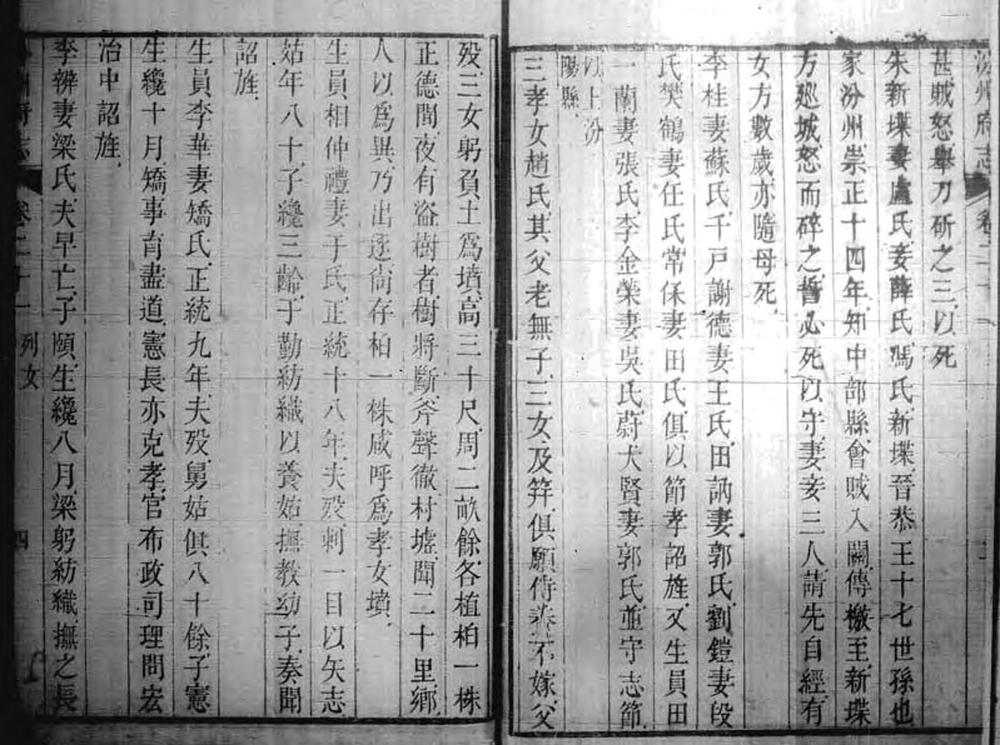 汾州府志 卷二十一
甚賊怒舉刀斫之三以死
朱新㙉妻盧氏妾薛氏馮氏新㙉晉恭王十七世孫也
家汾州崇正十四年知中部縣會賊入關傳檄至新㙉
方廵城怒而碎之誓必死以守妻妾三人請先自經有
女方數歲亦隨母死
李桂妻蘇氏千戸謝德妻王氏田訥妻郭氏劉鎧妻段
氏樊鶴妻任氏常保妻田氏俱以節孝詔旌又生員田
一蘭妻張氏李金榮妻吳氏蔚大賢妻郭氏並守志節
以上汾
陽縣
三孝女趙氏其父老無子三女及笄俱願侍養不嫁父
歿三女躬負土爲墳高三十尺周二畝餘各植柏一株
正德間夜有盜樹者樹將斷斧聲徹村墟聞二十里鄉
人以爲異乃出逐尙存柏一株咸呼爲孝女墳
生員相仲禮妻于氏正統十八年夫歿刺一目以矢志
姑年八十子纔三齡于勤紡織以養姑撫教幼子奏聞
詔旌
生員李華妻矯氏正統九年夫歿舅姑俱八十餘子憲
生纔十月矯事育盡道憲長亦克孝官布政司理問宏
治中詔旌
李辨妻梁氏夫早亡子頤生纔八月梁躬紡織撫之長
州府志 卷二十一 列女 四